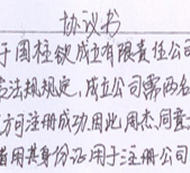 协议书
于周柱欲成立有限责任公司
法规规定,成立公司需两名
方可注册成功.因此周杰同意
用其身份证用于注册公司